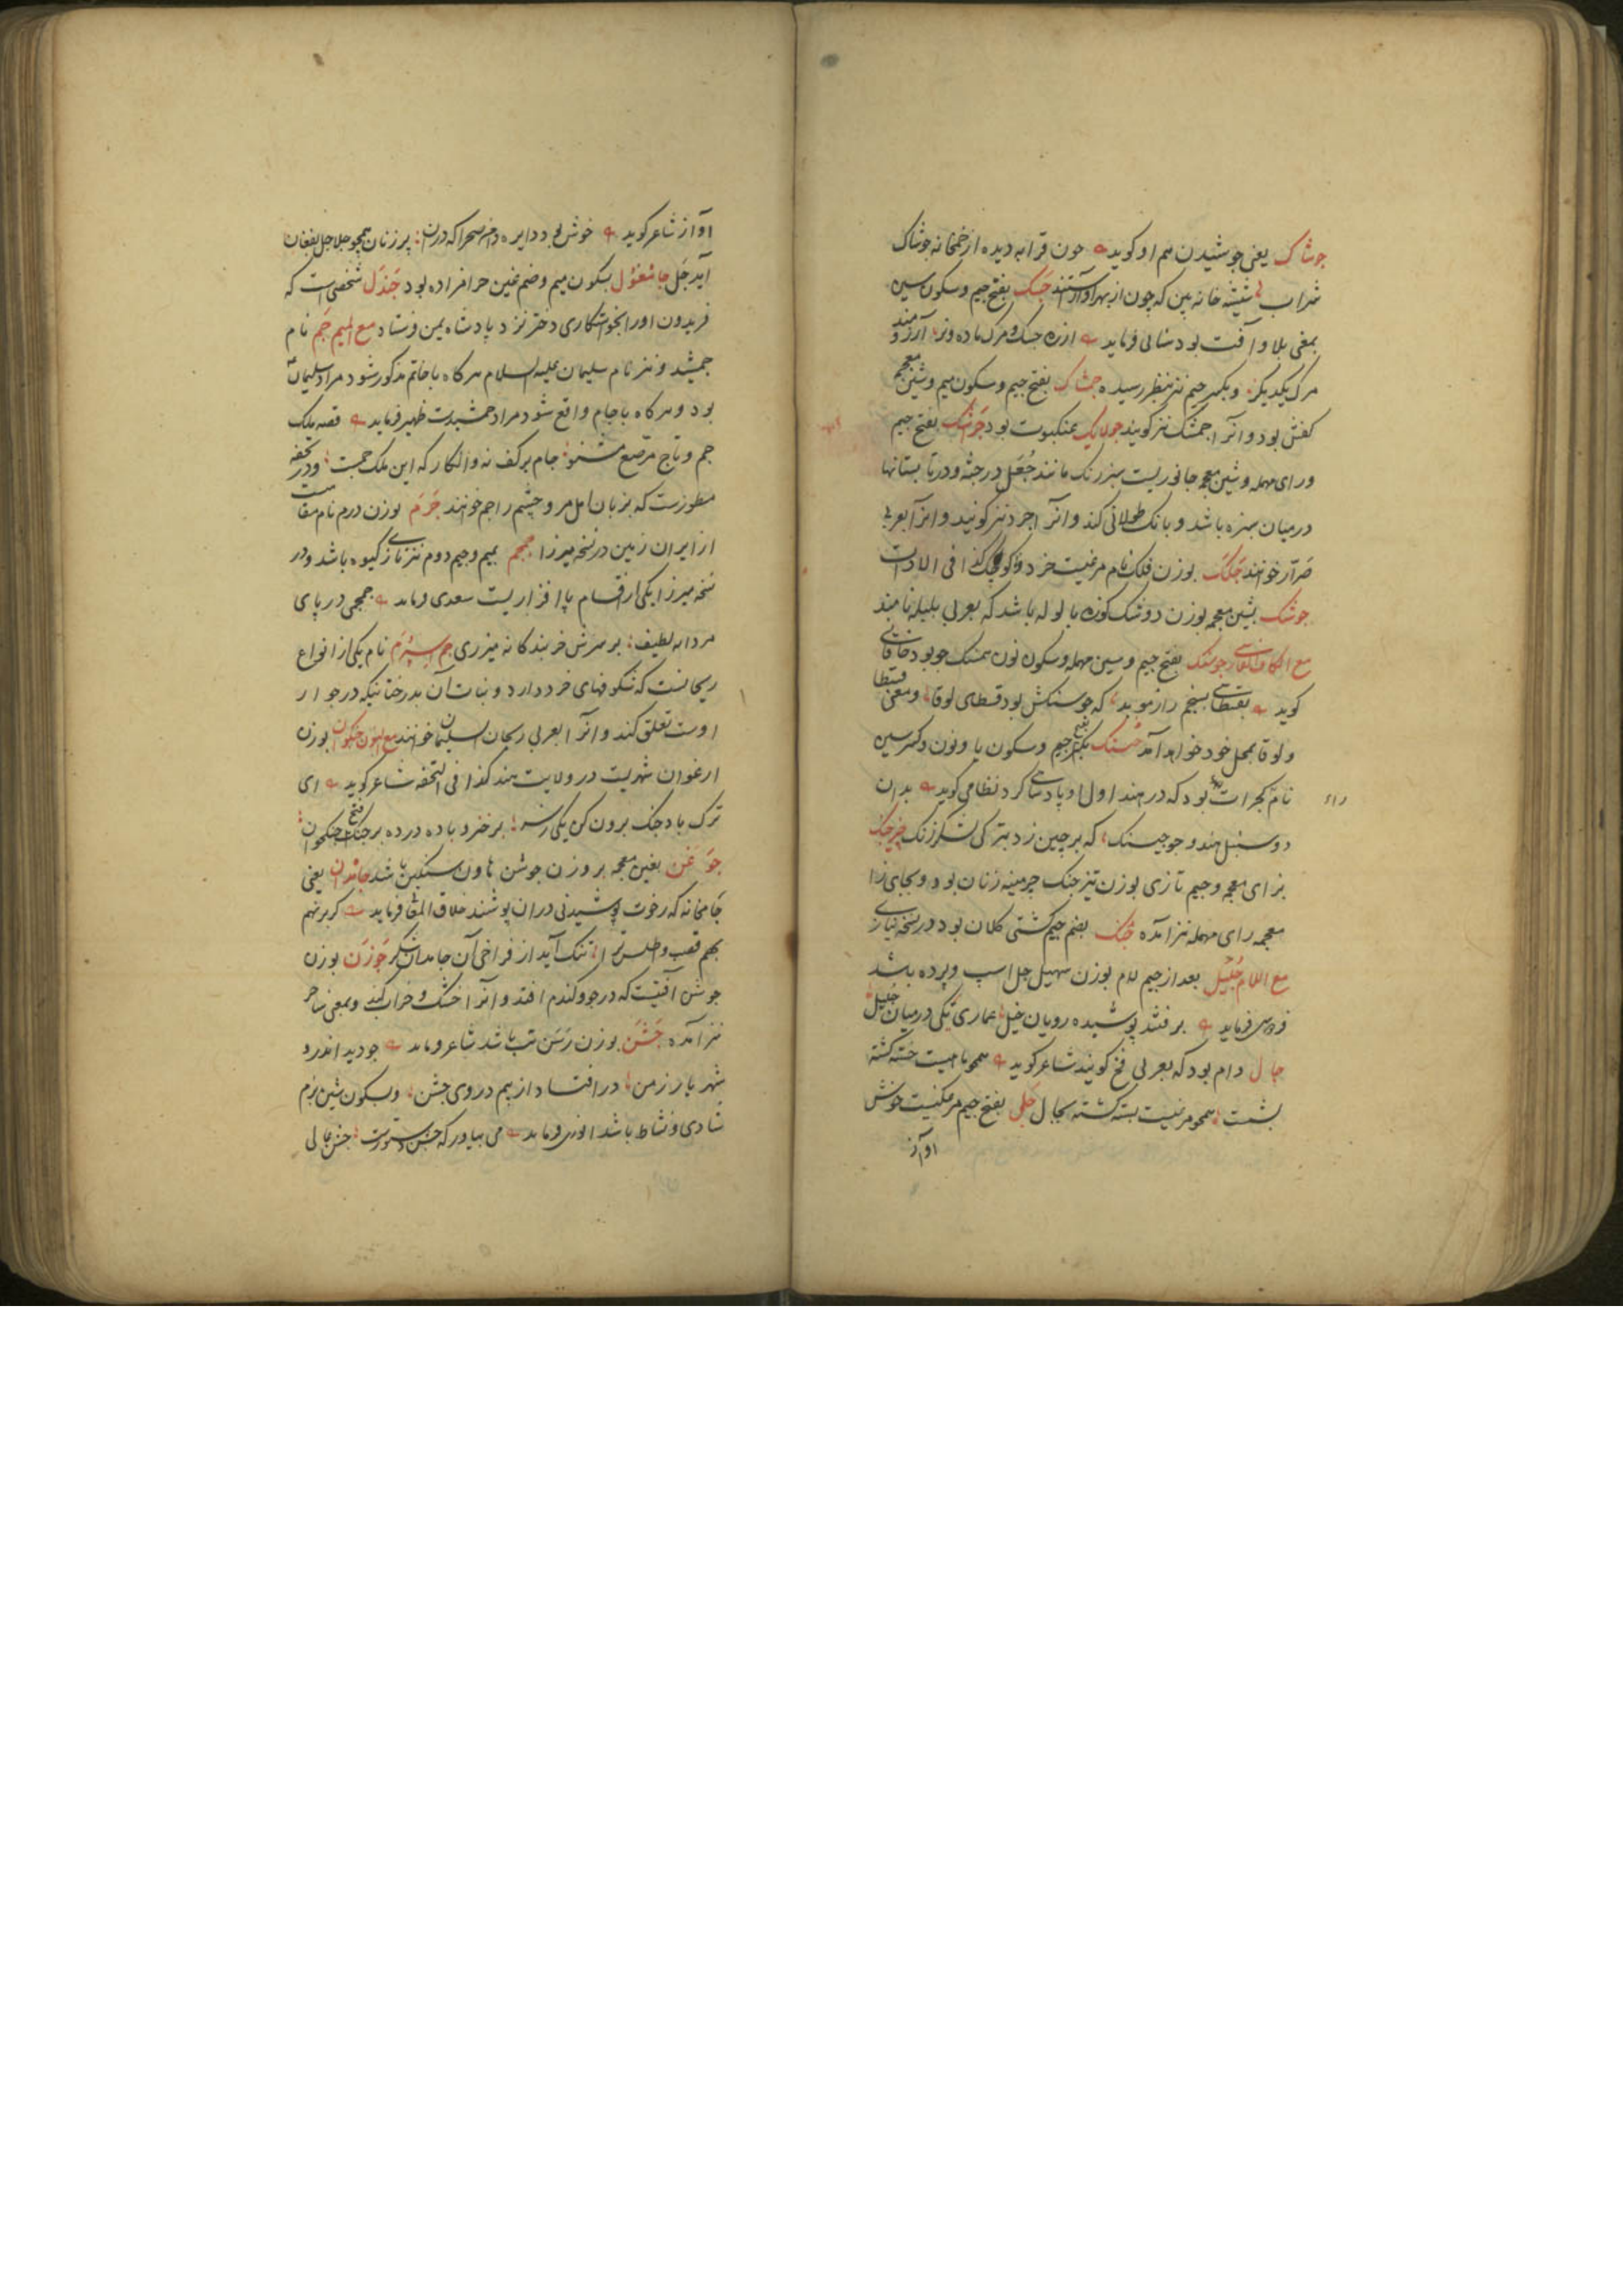 جوشاک یعنی جوشیدن هم او کوید خون قرابه دیده از خمخانه جوشاک
شراب شیشه خانه بین که چون از بهر جسک بفتح جیم و سکون سین
بمعنی بلا و آفت بود سنائی فرماید آرزومند
مرک یکدیکر و بکسر جیم نیز بنظر رسیده جمشاک بفتح جیم و سکون میم و شین معجم
کفش بود و انرا جمشک نیز کویند جولاهک عنکبوت بود جرشک بفتح جیم
و رای مهمله و شین معجمه جانوریست سبز رنک مانند جعل در جثه و در تابستانها
درمیان سبزه باشد و بانک طولانی کند و انرا جرد نیز کویند و انرا بعربی
صرار خوانند جلک بوزن فلک نام مرغیست خرد و کوچک کذا فی الادات
جوشک بشین معجمه بوزن دوشک کوزه با لوله باشد که بعربی بلبله نامند
مع الکاف الفارسی جوسنک بفتح جیم و سین مهمله و سکون نون همسنک جو بود خاقانی
کوید بقسطاسی بسنجم راز موبد که جوسنکش بود قسطای لوقا و معنی قسطا
و لوقا بمحل خود خواهد آمد جیسنک بکسر جیم و سکون یا و نون و کسر سین
نام کجرات بود که در هند اول او پادشاهی کرد نظامی کوید بدان
دو سنبل هندو جو جیسنک که بر چین زد بترکی لشکر زنک جزجنک
بزای معجمه و جیم تازی بوزن تیز جنک چرمینه زنان بود و بجای زا
معجمه رای مهمله نیز آمده جنک بضم جیم کشتی کلان بود در نسخه نیازی
مع اللام جلیل بعد از جیم لام بوزن سهیل جل اسپ و پرده باشد
فردوسی فرماید برفتند پوشیده رویان خیل عماری یکی درمیان جلیل
جال دام بود که بعربی فخ کویند شاعر کوید همچو ماهیست خسته کشته
بشست همچو مرغیست بسته کشته بجال جل بفتح جیم مرغکیست خوش
آواز
آواز شاعر کوید خوش بود دایره دامن صحرا که درن پر زنان همچو جلاجل بفغان
آید جل جامغول بسکون میم و ضم غین حرامزاده بود جندل شخصی است که
فریدون اورا بخواستکاری دختر نزد پادشاه یمن فرستاد مع المیم جم نام
جمشید و نیز نام سلیمان علیه السلام هرکاه با خاتم مذکور شود مراد سلیمان
بود و هرکاه با جام واقع شود مراد جمشیدست ظهیر فرماید قصه ملک
جم و تاج مرصع مشنو جام بر کف نه و انکار که این ملک جمست و در تحفه
مسطورست که بزبان اهل مرو چشم را جم خوانند جرم بوزن درم نام مقامیست
از ایران زمین در نسخه میرزا جمجم بمیم و جیم دوم نیز تازی کیوه باشد و در
نسخه میرزا یکی از اقسام پا افزاریست سعدی فرماید جمجمی در پای
مردانه لطیف بر سرش خربندکانه میزری جم اسپرم نام یکی از انواع
ریحانست که شکوفهای خرد دارد و نبات آن بدرختانیکه در جوار
اوست تعلق کند و انرا بعربی ریحان السلیمان خوانند مع النون جنکوان بوزن
ارغوان شهریست در ولایت هند کذا فی التحفه شاعر کوید ای
ترک باد جنک برون کن یکی ز سر برخیز و باده درده بر فتح جنکوان
جوغن بغین معجمه بر وزن جوشن هاون سنکین باشد جامدان یعنی
جامخانه که رخوت پوشیدنی دران پوشند خلاق المعانی فرماید کر بر نهم
بهم قصب و اطلس ترا تنک آید از فراخی آن جامدان شکر جوزن بوزن
جوشن آفتیست که در جو و کندم افتد و انرا خشک و خراب کند و بمعنی ساحر
نیز آمده جشن بوزن رسن تب باشد شاعر فرماید جو دید اندرو
شهریار زمن در افتاد از بیم در وی جشن و بسکون شین بزم
شادی و نشاط باشد انوری فرماید می بیاور که جشن دستورست جشن عالی